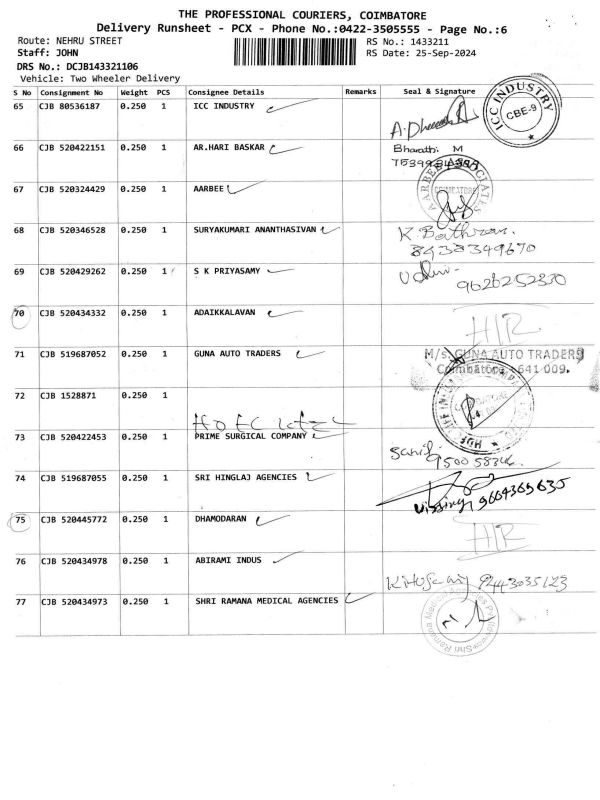 THE PROFESSIONAL COURIERS, COIMBATORE
Delivery Runsheet - PCX - Phone No.:0422-3505555 - Page No.:6
Route: NEHRU STREET
RS No.: 1433211
Staff: JOHN
RS Date: 25-Sep-2024
DRS No.: DCJB143321106
Vehicle: Two Wheeler Delivery
S No Consignment No Weight PCS Consignee Details Remarks Seal & Signature
65 CJB 80536187 0.250 1 ICC INDUSTRY
ICC INDUSTRY
CBE-9
66 CJB 520422151 0.250 1 AR.HARI BASKAR
Bharathi M
67 CJB 520324429 0.250 1 AARBEE
AARBEE ASSOCIATES
COIMBATORE
68 CJB 520346528 0.250 1 SURYAKUMARI ANANTHASIVAN
8438349670
69 CJB 520429262 0.250 1 S K PRIYASAMY
9626252330
70 CJB 520434332 0.250 1 ADAIKKALAVAN
71 CJB 519687052 0.250 1 GUNA AUTO TRADERS
M/s. GUNA AUTO TRADERS
Coimbatore - 641 009.
72 CJB 1528871 0.250 1
73 CJB 520422453 0.250 1 PRIME SURGICAL COMPANY
74 CJB 519687055 0.250 1 SRI HINGLAJ AGENCIES
9664369635
75 CJB 520445772 0.250 1 DHAMODARAN
76 CJB 520434978 0.250 1 ABIRAMI INDUS
9443035123
77 CJB 520434973 0.250 1 SHRI RAMANA MEDICAL AGENCIES